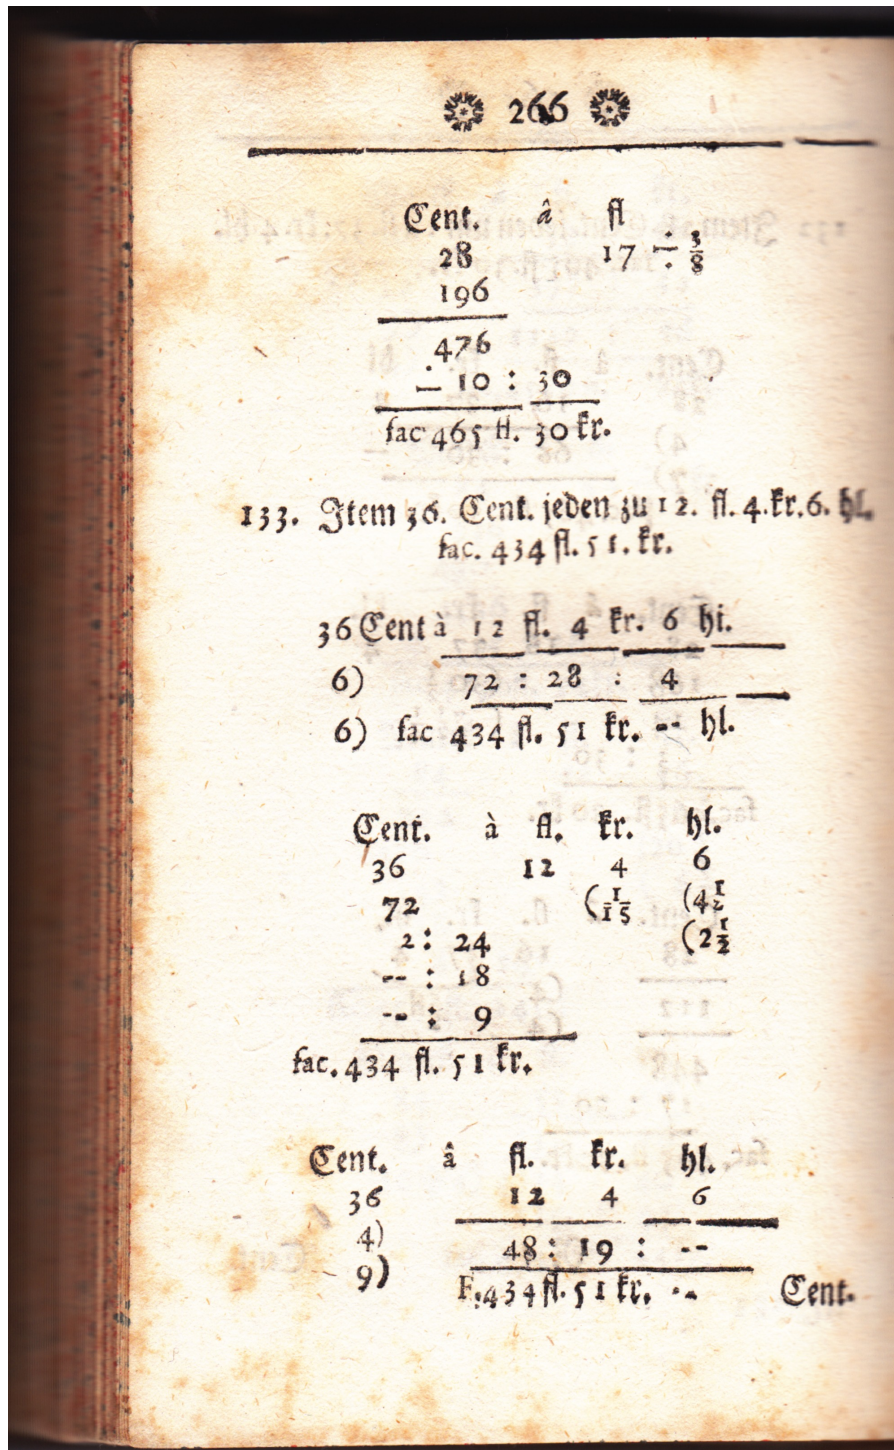 266
Cent. â fl
28 17 ÷ 3/8
196
476
÷ 10 : 30
fac 465 fl. 30 kr.
133. Item 36. Cent. jeden zu 12. fl. 4. kr. 6. hl.
fac. 434 fl. 51. kr.
36 Cent à 12 fl. 4 kr. 6 hl.
6) 72 : 28 : 4
6) fac 434 fl. 51 kr. -- hl.
Cent. à fl. kr. hl.
36 12 4 6
72 (1/15 (4 1/2
2 : 24 (2 1/2
-- : 18
-- : 9
fac. 434 fl. 51 kr.
Cent. â fl. kr. hl.
36 12 4 6
4) 48 : 19 : --
9) F. 434 fl. 51 kr. --
Cent.